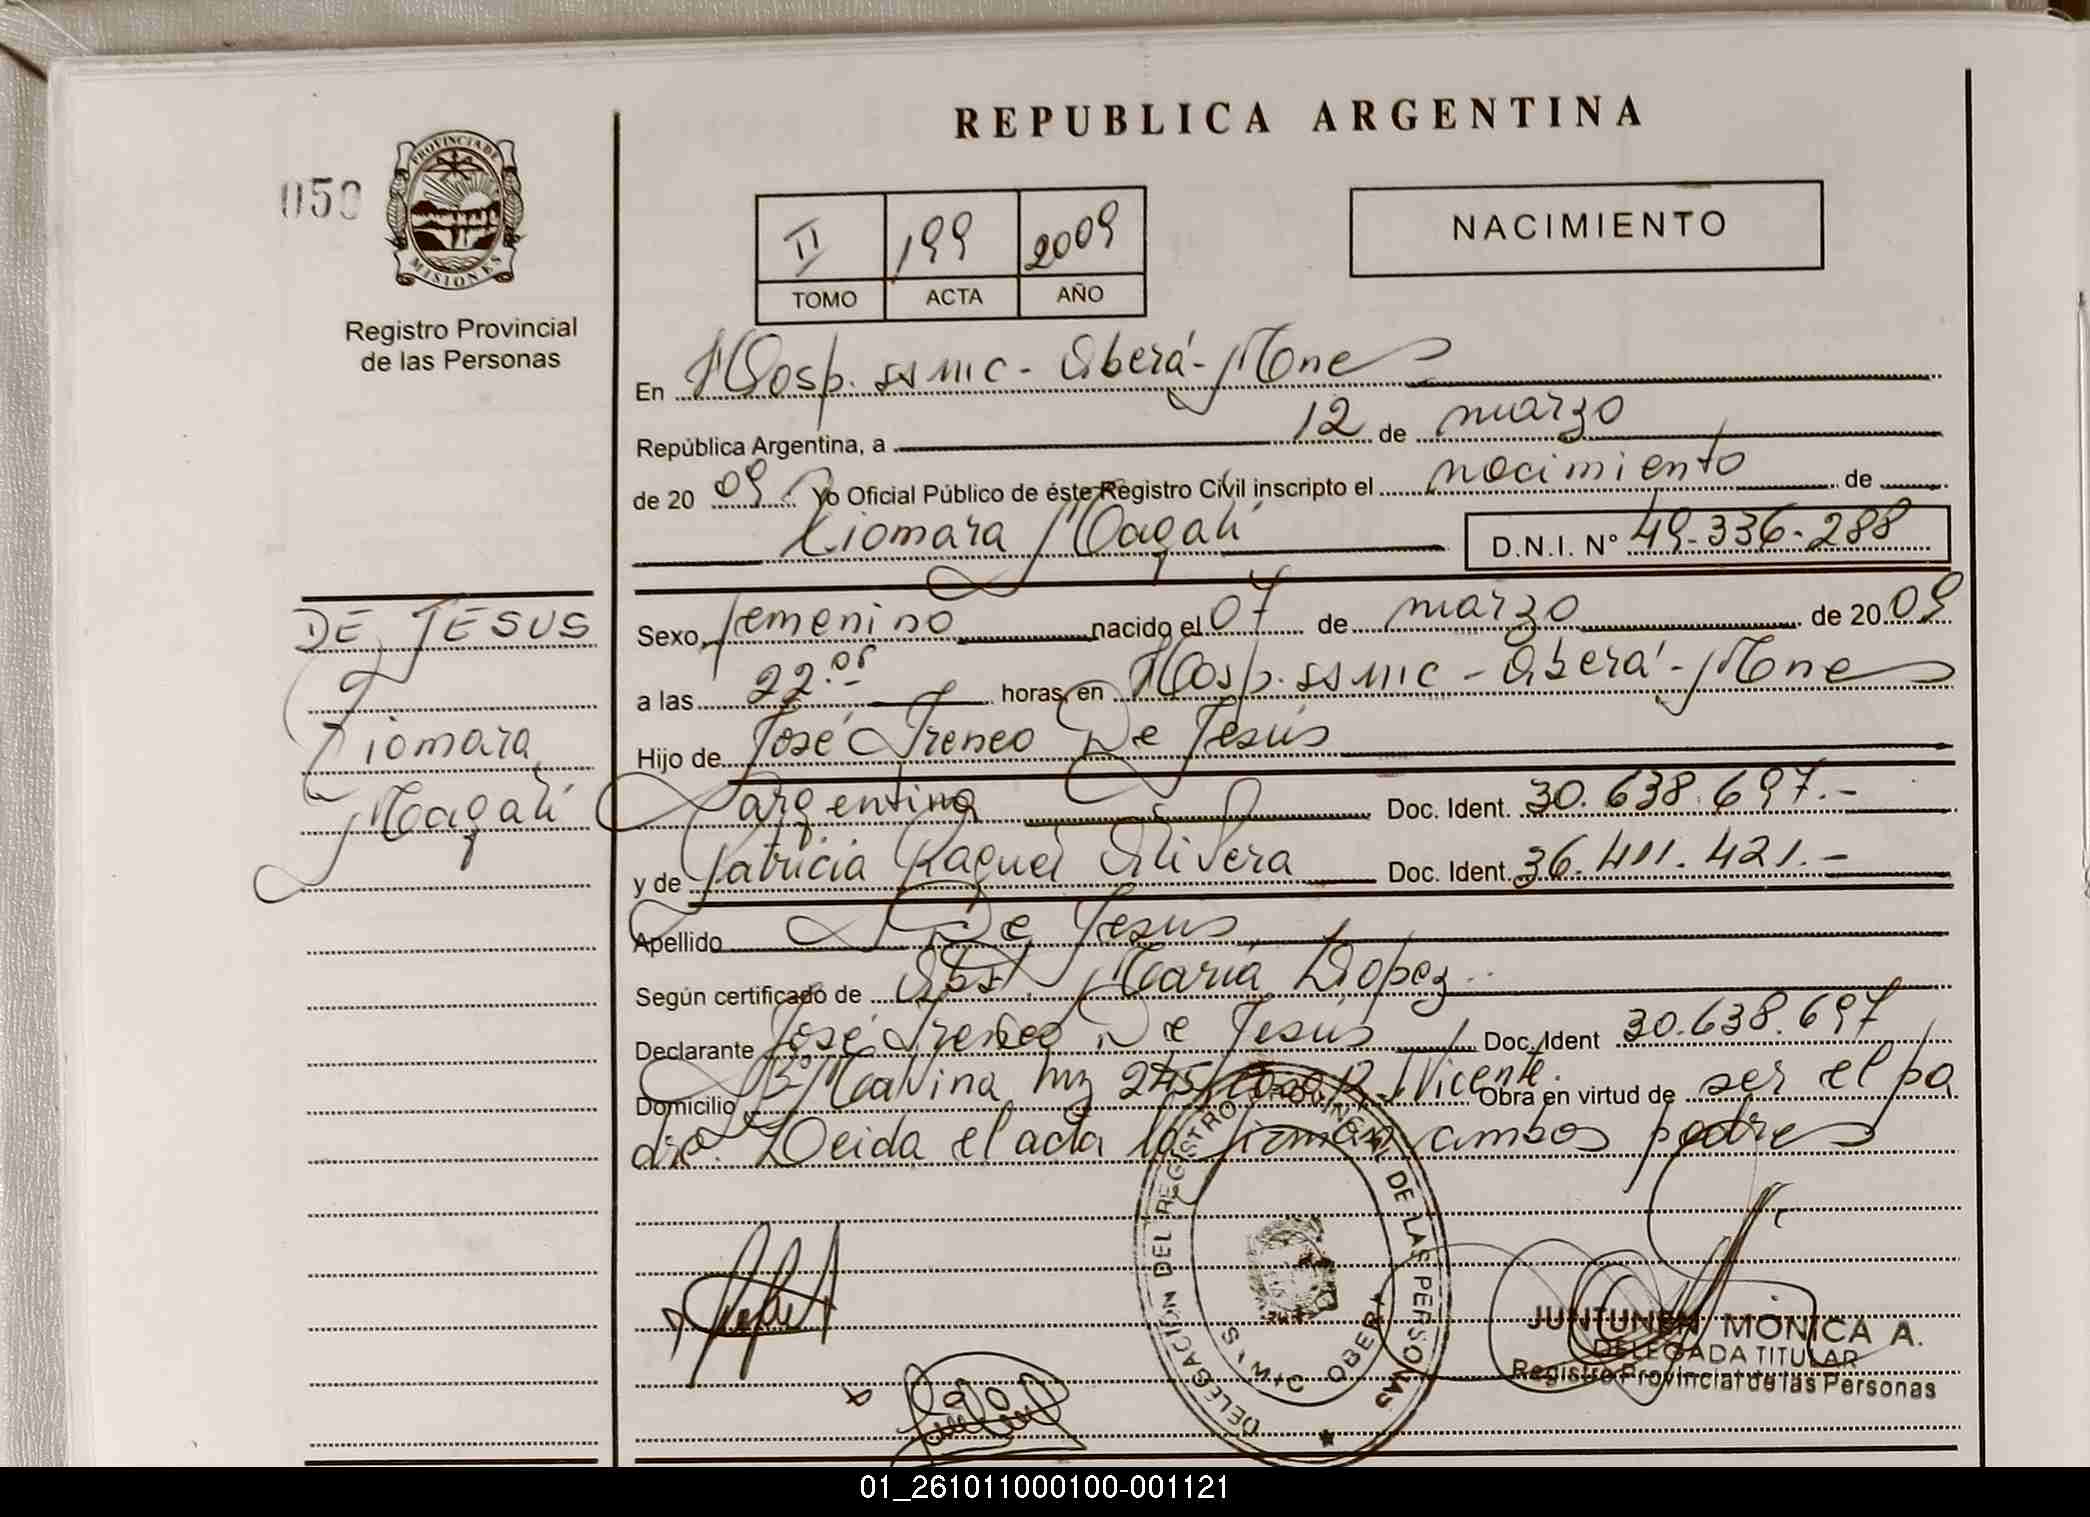 REPUBLICA ARGENTINA
050
PROVINCIA DE
MISIONES
Registro Provincial
de las Personas
II 199 2009
TOMO ACTA AÑO
NACIMIENTO
En Hosp. ssmic - Oberá - Mnes
República Argentina, a 12 de marzo
de 20 09 Yo Oficial Público de éste Registro Civil inscripto el nacimiento de
Xiomara Magalí D.N.I. Nº 49.336.288
DE JESUS
Xiomara
Magalí
Sexo femenino nacido el 07 de marzo de 20 09
a las 22.05 horas, en Hosp. ssmic - Oberá - Mnes
Hijo de José Ireneo De Jesús
argentino Doc. Ident. 30.638.697.-
y de Patricia Raquel Olivera Doc. Ident. 36.411.421.-
Apellido De Jesus
Según certificado de Obst. María Lopez
Declarante José Ireneo De Jesús Doc. Ident 30.638.697
Domicilio Bº Malvina mz 245 Vicente. Obra en virtud de ser el pa
dre. Leida el acta la firman ambos padres
DELEGACIÓN DEL REGISTRO PROVINCIAL DE LAS PERSONAS
OBERA
JUNTUNEN MONICA A.
DELEGADA TITULAR
Registro Provincial de las Personas
01_261011000100-001121